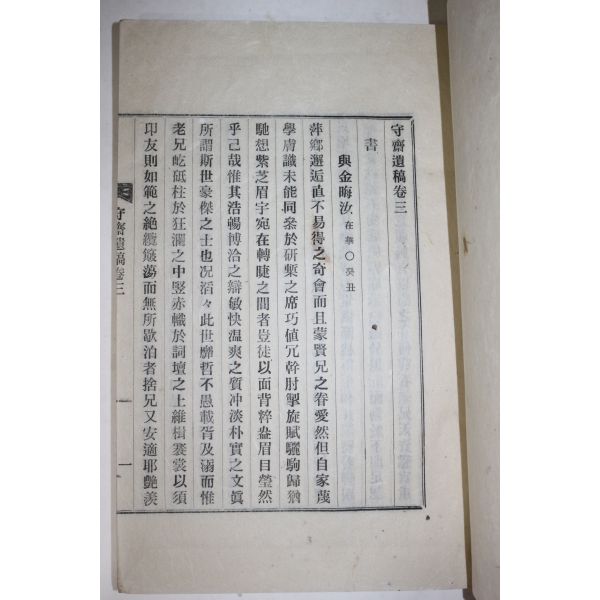 守齋遺稿卷三
書
與金晦汝 在華○癸丑
萍鄉邂逅直不易得之奇會而且蒙賢兄之眷愛然但自家蔑
學膚識未能同參於研槧之席巧値冗幹肘掣旋賦驪駒歸猶
馳想紫芝眉宇宛在轉睫之間者豈徒以面背粹盎眉目瑩然
乎己哉惟其浩暢博洽之辯敏快温爽之質冲淡朴實之文眞
所謂斯世豪傑之士也况滔々此世靡哲不愚載胥及溺而惟
老兄屹砥柱於狂瀾之中竪赤幟於詞壇之上維楫褰裳以須
卬友則如範之絶纜簸蕩而無所歇泊者捨兄又安適耶艶羨
守齋遺稿卷三
一